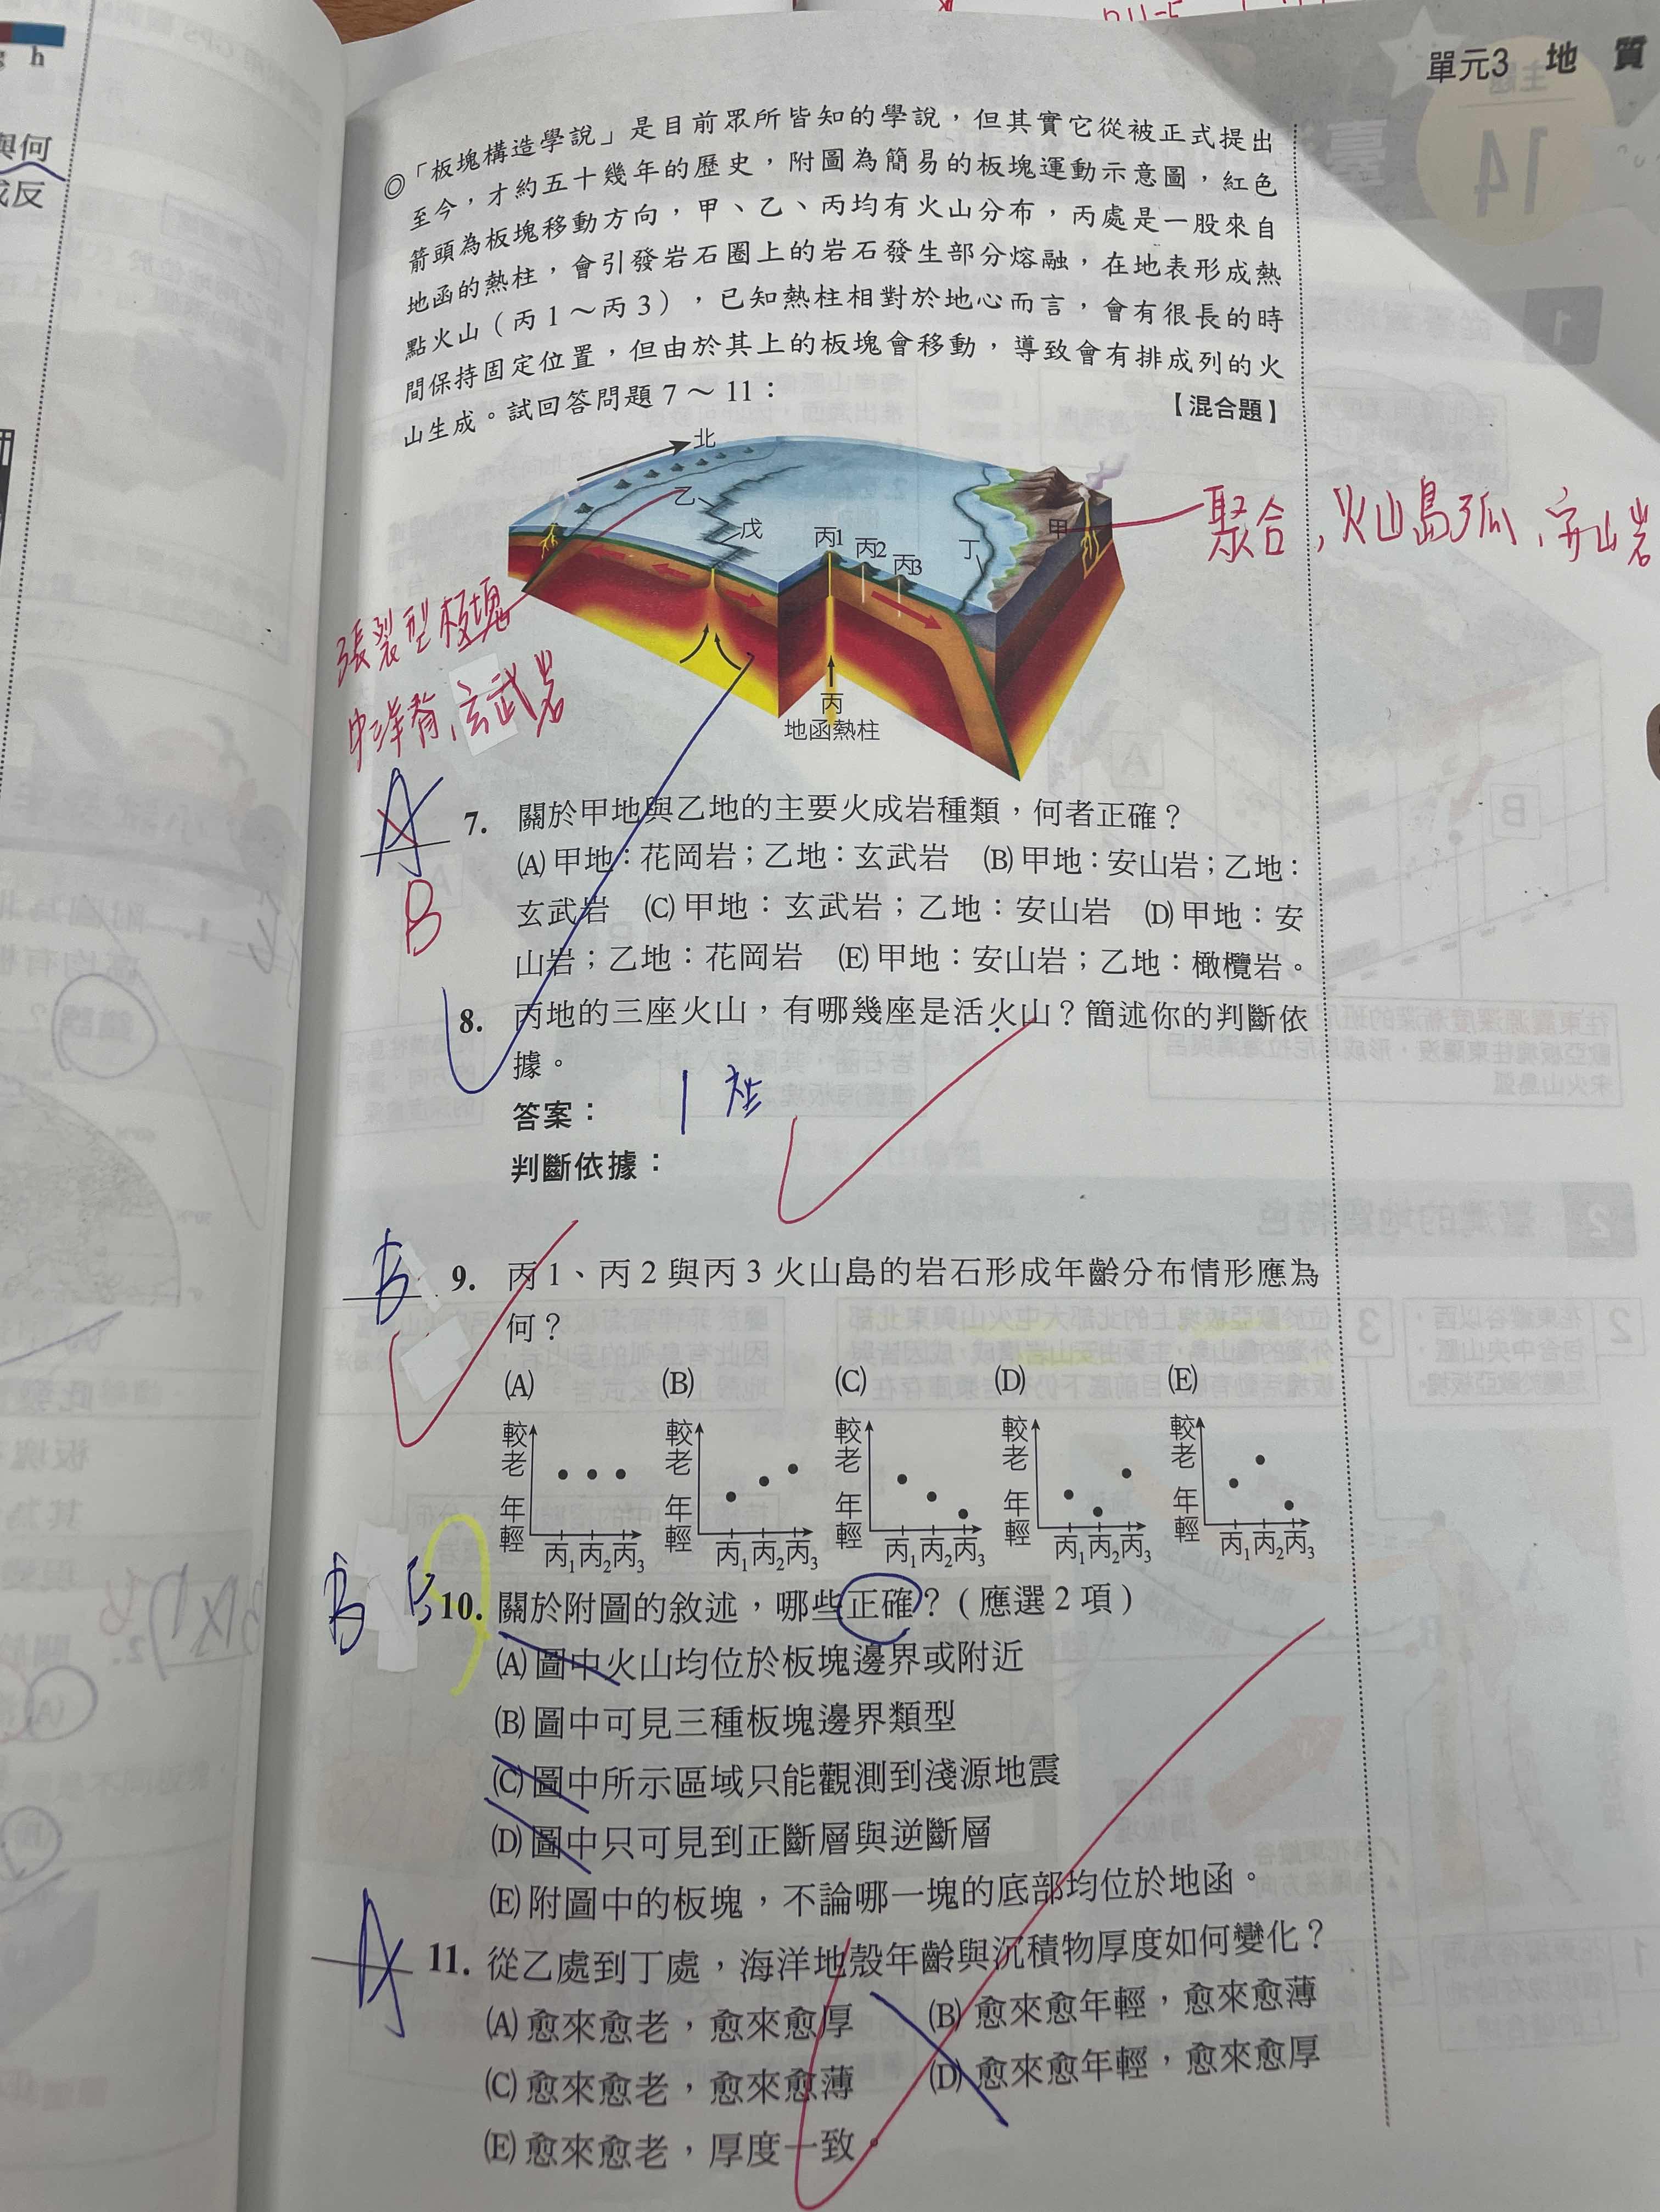 單元3 地質
◎「板塊構造學說」是目前眾所皆知的學說，但其實它從被正式提出
至今，才約五十幾年的歷史，附圖為簡易的板塊運動示意圖，紅色
箭頭為板塊移動方向，甲、乙、丙均有火山分布，丙處是一股來自
地函的熱柱，會引發岩石圈上的岩石發生部分熔融，在地表形成熱
點火山（丙1～丙3），已知熱柱相對於地心而言，會有很長的時
間保持固定位置，但由於其上的板塊會移動，導致會有排成列的火
山生成。試回答問題7～11：
【混合題】
北
乙
戊
丙1
丙2
丙3
丁
甲
聚合，火山島弧、安山岩
張裂型板塊
中洋脊、玄武岩
丙
地函熱柱
A
B
7. 關於甲地與乙地的主要火成岩種類，何者正確？
(A)甲地：花岡岩；乙地：玄武岩 (B)甲地：安山岩；乙地：
玄武岩 (C)甲地：玄武岩；乙地：安山岩 (D)甲地：安
山岩；乙地：花岡岩 (E)甲地：安山岩；乙地：橄欖岩。
8. 丙地的三座火山，有哪幾座是活火山？簡述你的判斷依
據。
答案： 1座
判斷依據：
B 9. 丙1、丙2與丙3火山島的岩石形成年齡分布情形應為
何？
(A) (B) (C) (D) (E)
較老 較老 較老 較老 較老
年輕 年輕 年輕 年輕 年輕
丙1丙2丙3 丙1丙2丙3 丙1丙2丙3 丙1丙2丙3 丙1丙2丙3
B E 10. 關於附圖的敘述，哪些正確？（應選2項）
(A)圖中火山均位於板塊邊界或附近
(B)圖中可見三種板塊邊界類型
(C)圖中所示區域只能觀測到淺源地震
(D)圖中只可見到正斷層與逆斷層
(E)附圖中的板塊，不論哪一塊的底部均位於地函。
A 11. 從乙處到丁處，海洋地殼年齡與沉積物厚度如何變化？
(A)愈來愈老，愈來愈厚 (B)愈來愈年輕，愈來愈薄
(C)愈來愈老，愈來愈薄 (D)愈來愈年輕，愈來愈厚
(E)愈來愈老，厚度一致。